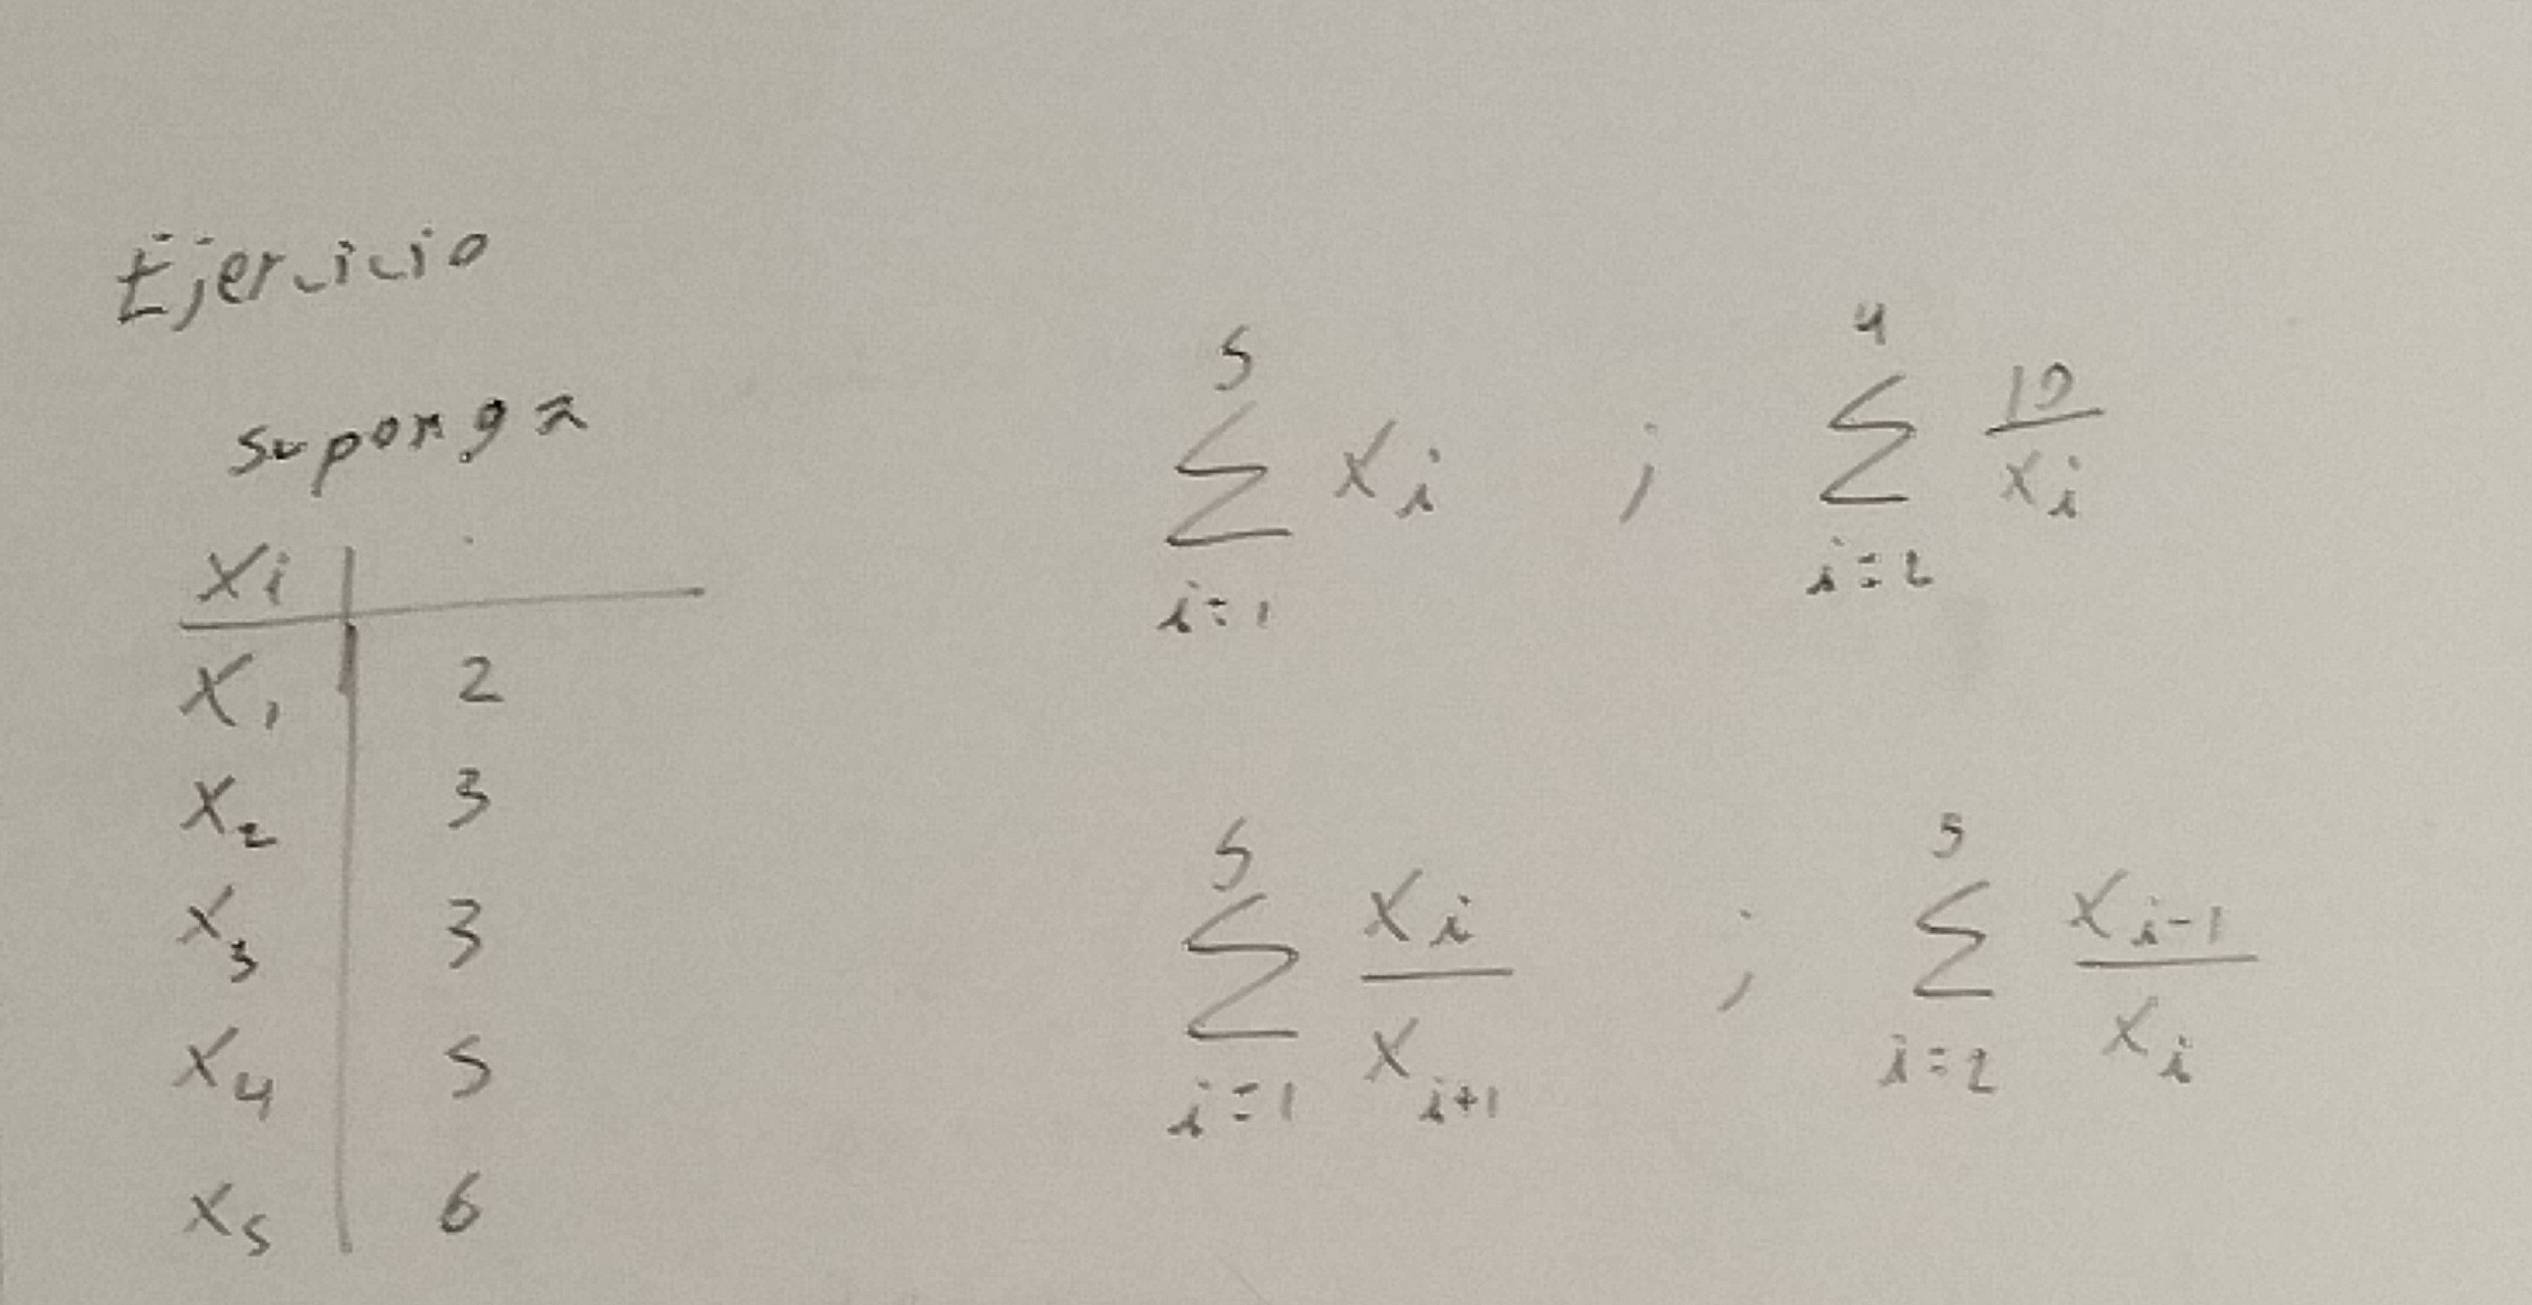 Ejercicio
suponga
Xi
X₁ 2
X₂ 3
X₃ 3
X₄ 5
X₅ 6
5
∑ Xi ;
i=1
4
∑ 10/Xi
i=2
5
∑ Xi/Xi+1 ;
i=1
5
∑ Xi-1/Xi
i=2